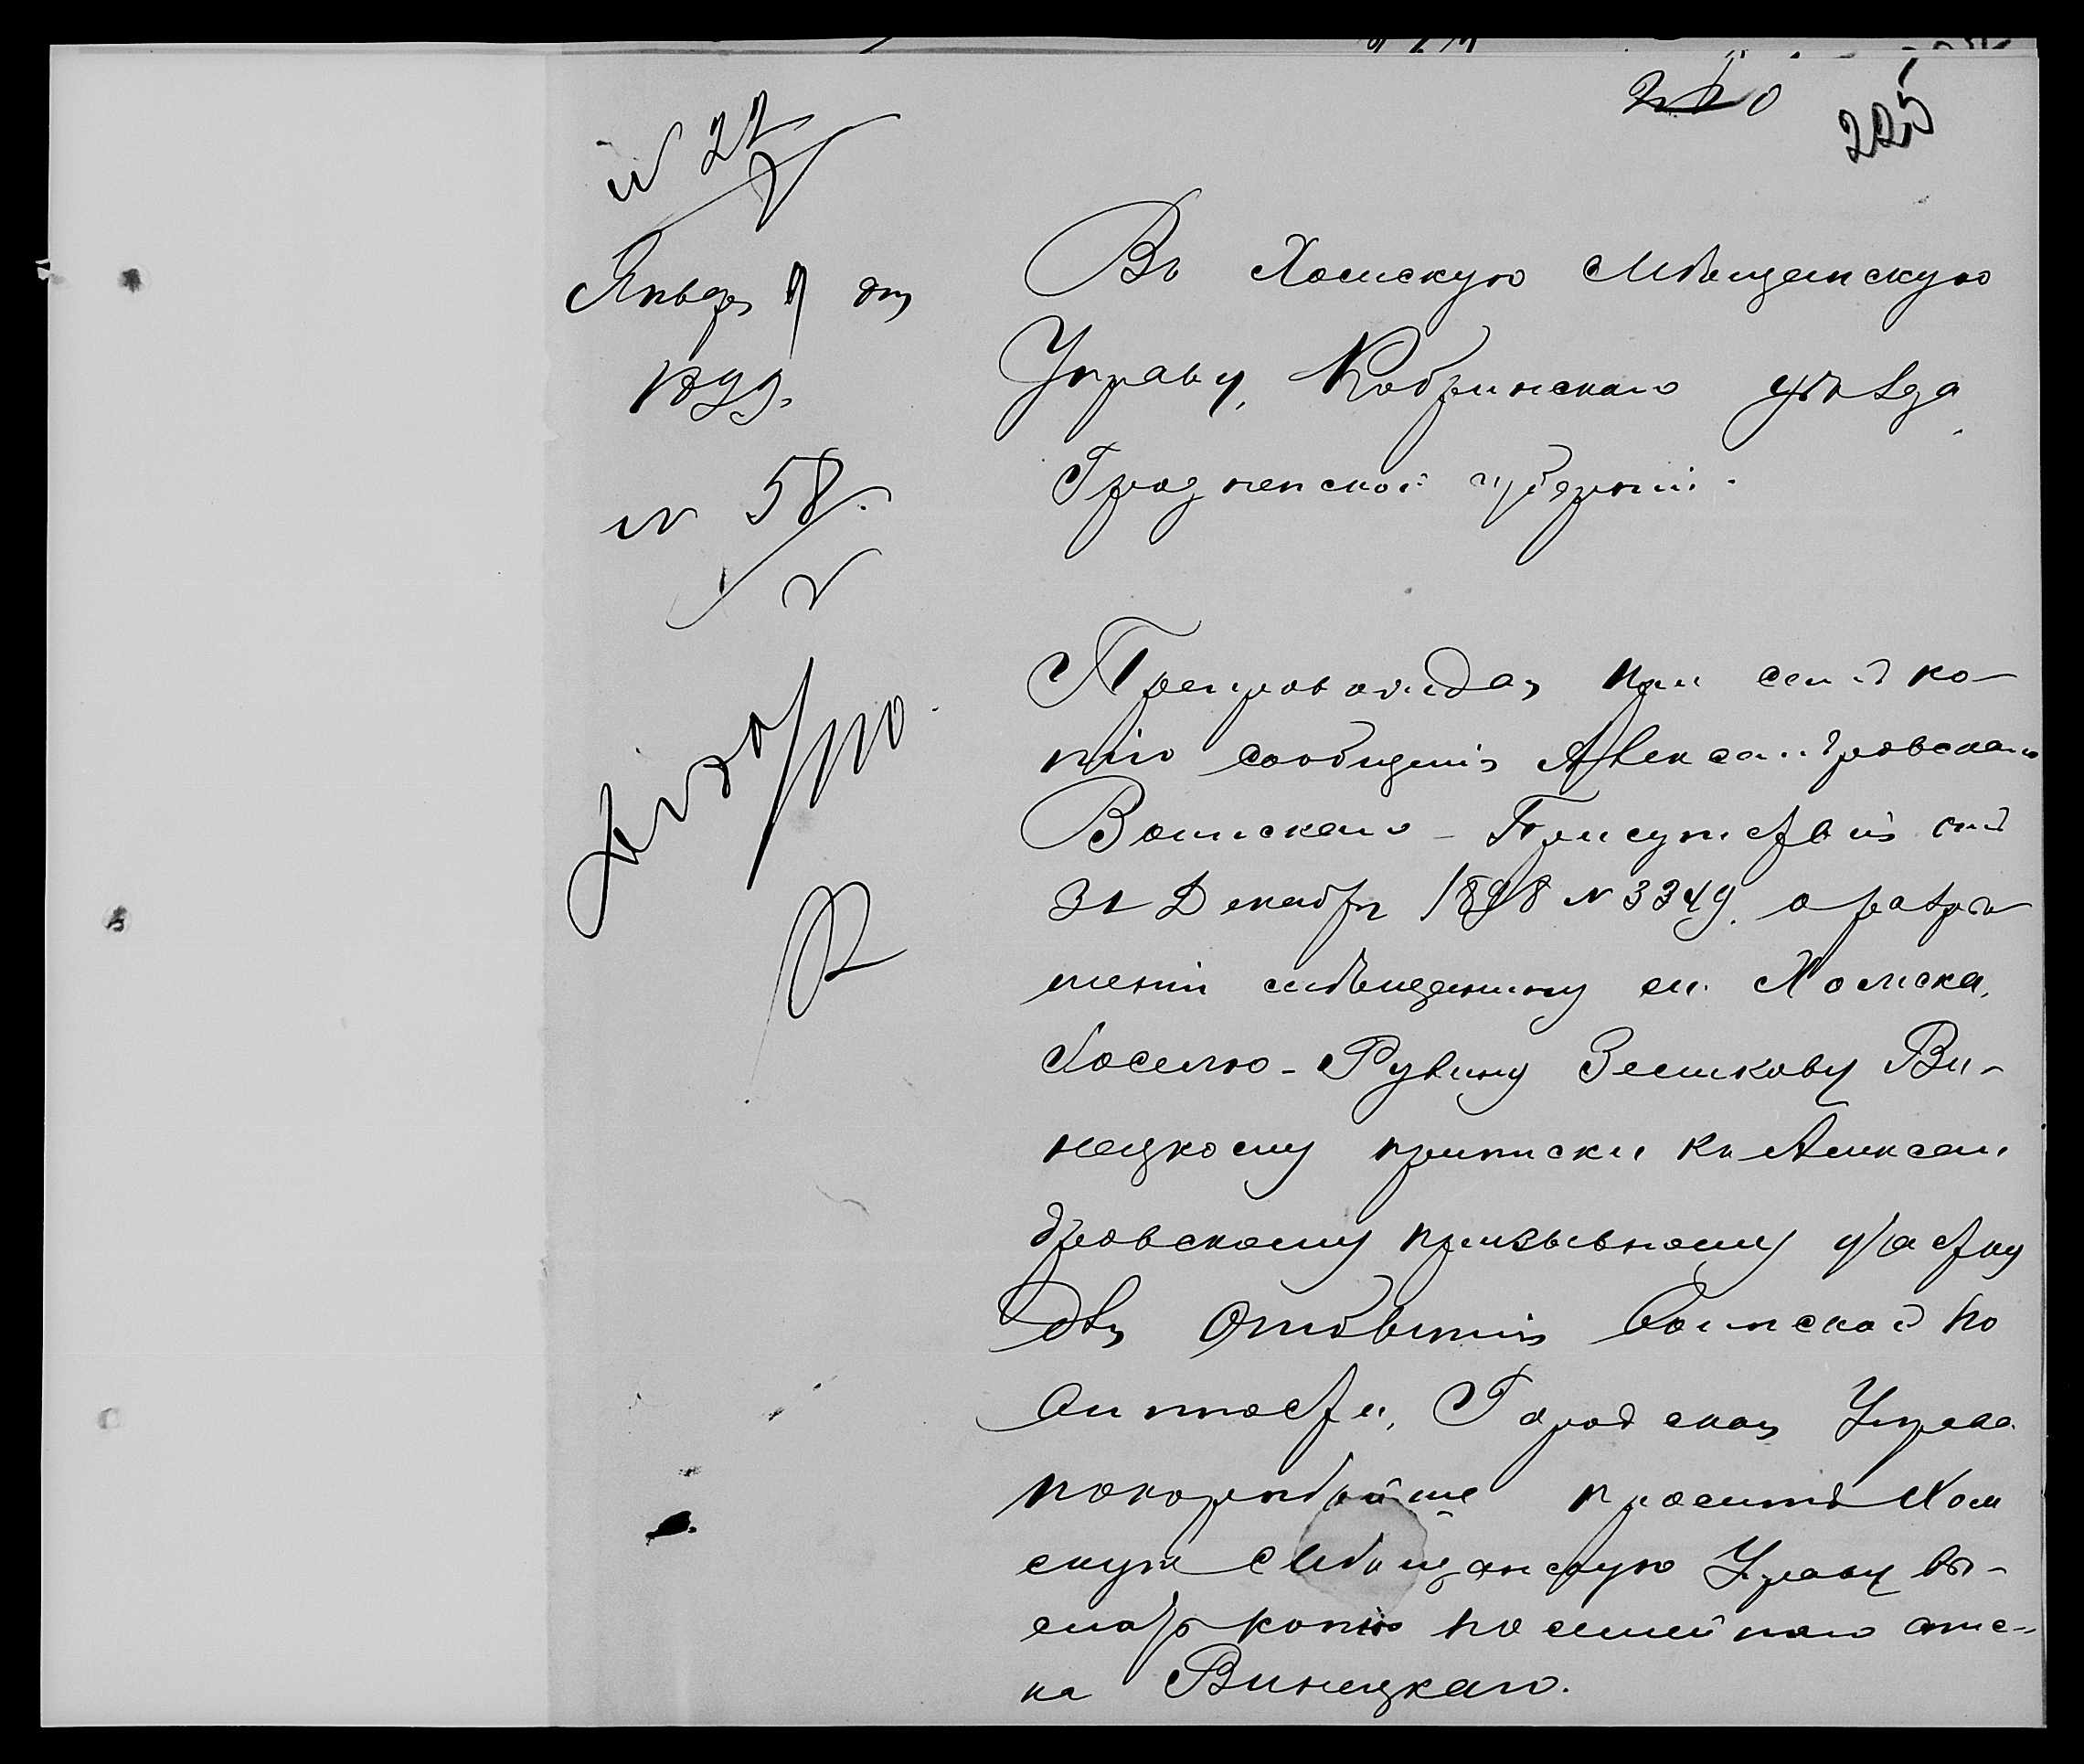 225
№ 22
Января 9 дня
1899
№ 58
Въ Хомскую Мѣщанскую
Управу, Кобринскаго уѣзда,
Гродненской губерніи.
Препровождая при семъ ко-
пію сообщенія Александровскаго
Воинскаго Присутствія отъ
31 Декабря 1898 № 3349, о разрѣ
шеніи мѣщанину м. Хомска,
Іоселю-Рувину Зеликову Ви-
нецкому приписки къ Алексан
дровскому призывному участку
для отбытія воинской по
винности, Городская Управа
покорнѣйше проситъ Хом
скую Мѣщанскую Управу вы-
слать копію посемейнаго спис-
ка Винецкаго.